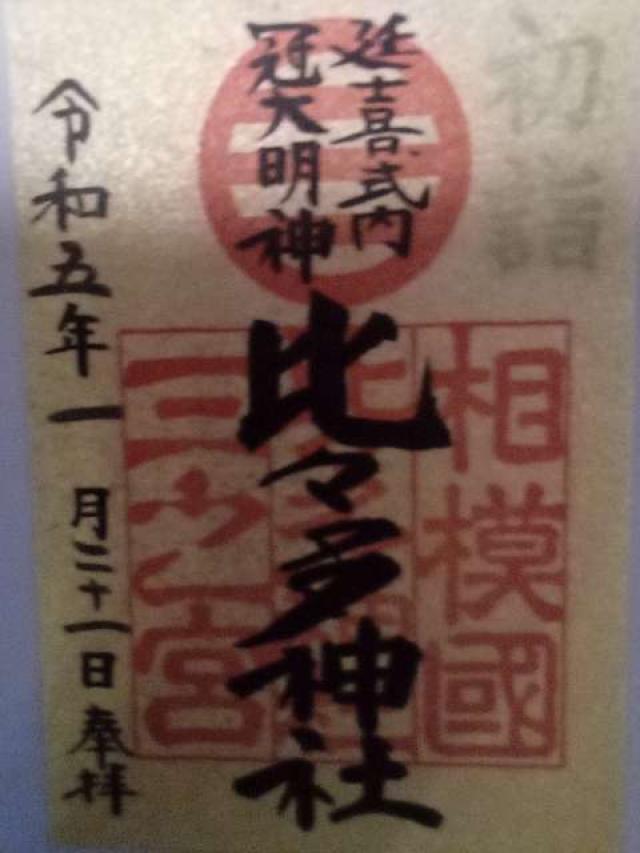 初詣
延喜式内
冠大明神
比々多神社
相模國
三之宮
令和五年一月二十一日奉拝